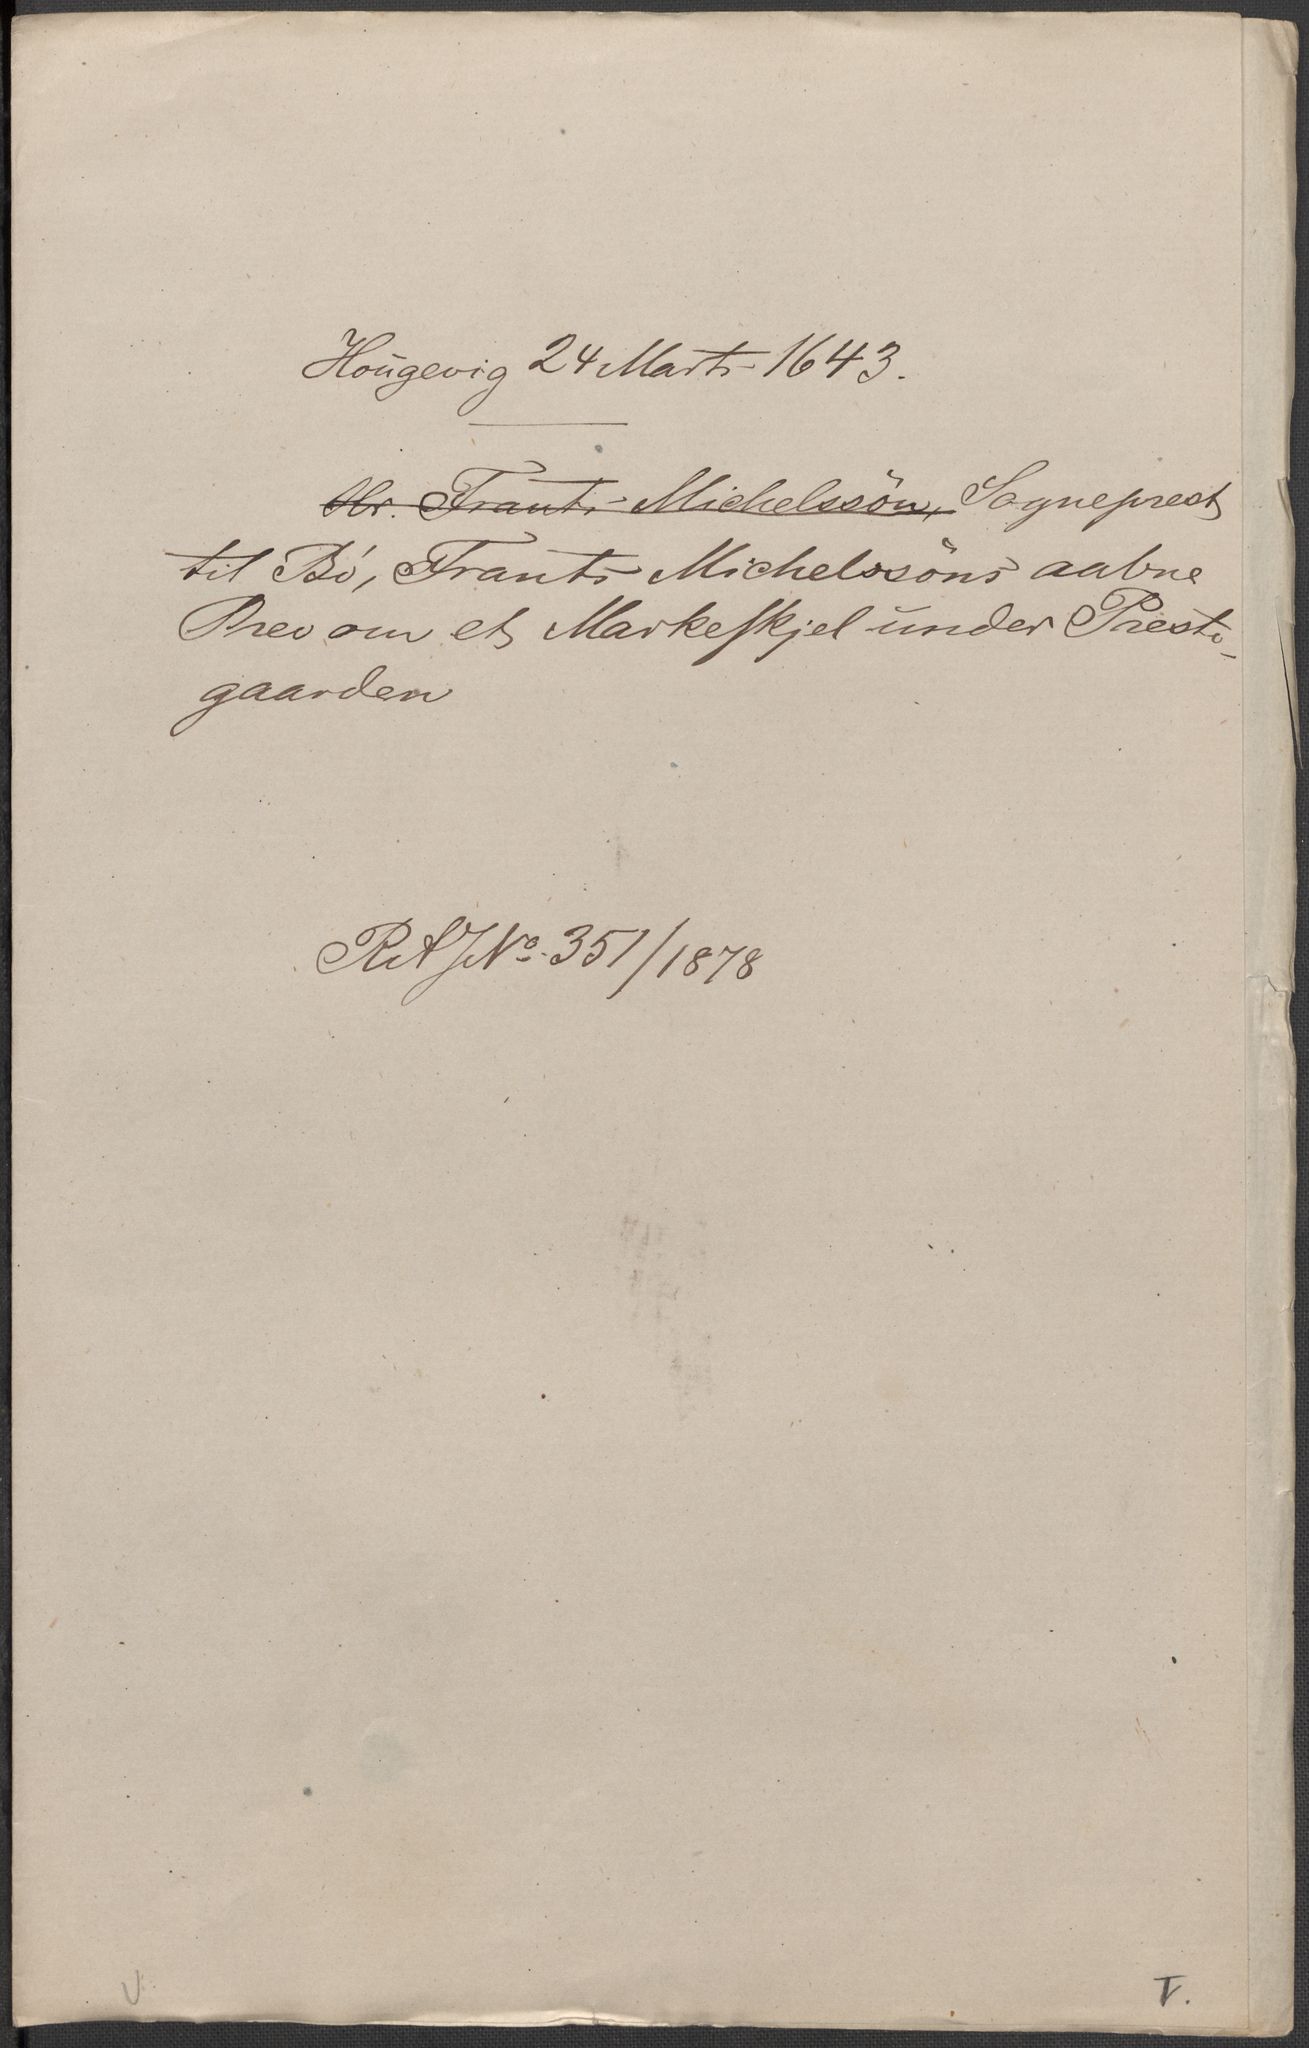 Hougevig 24 Marts 1643.
Hr. Frants Michelssön, Sogneprest
til Bö, Frants Michelssöns aabne
Brev om et Markeskjel under Prests-
gaarden
RAJNo. 351/1878
V.
T.